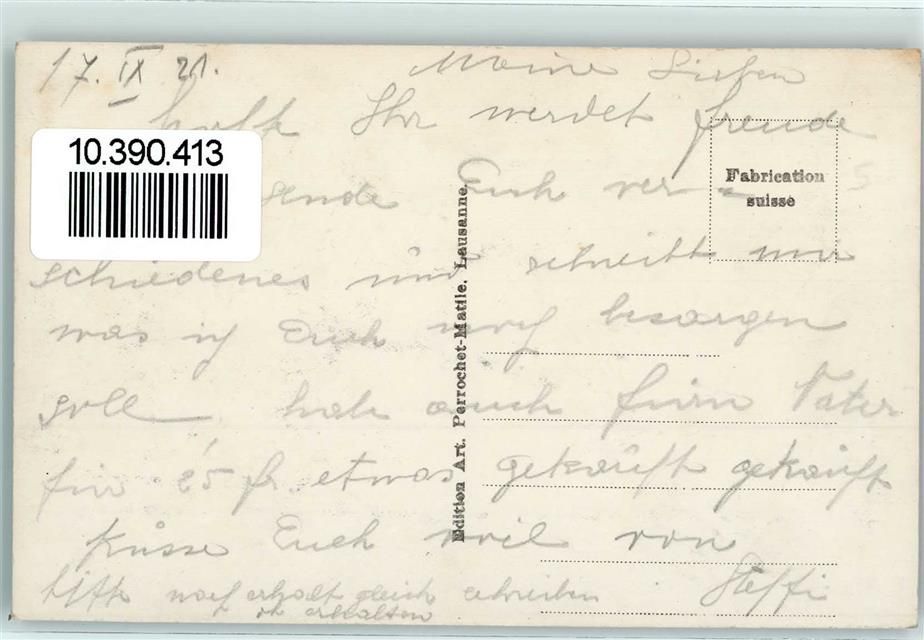 17. IX 21. Meine Lieben
hoffe Ihr werdet freude
10.390.413
sende Euch ver=
Fabrication
suisse
schiedenes und schreibt mir
was ich Euch noch besorgen
soll hab auch fürn Vater
für 25 fr. etwas gekauft gekauft
Küsse Euch viel von
Steffi
bitte nach erhalt gleich schreiben
ob erhalten
Edition Art. Perrochet-Matile. Lausanne.